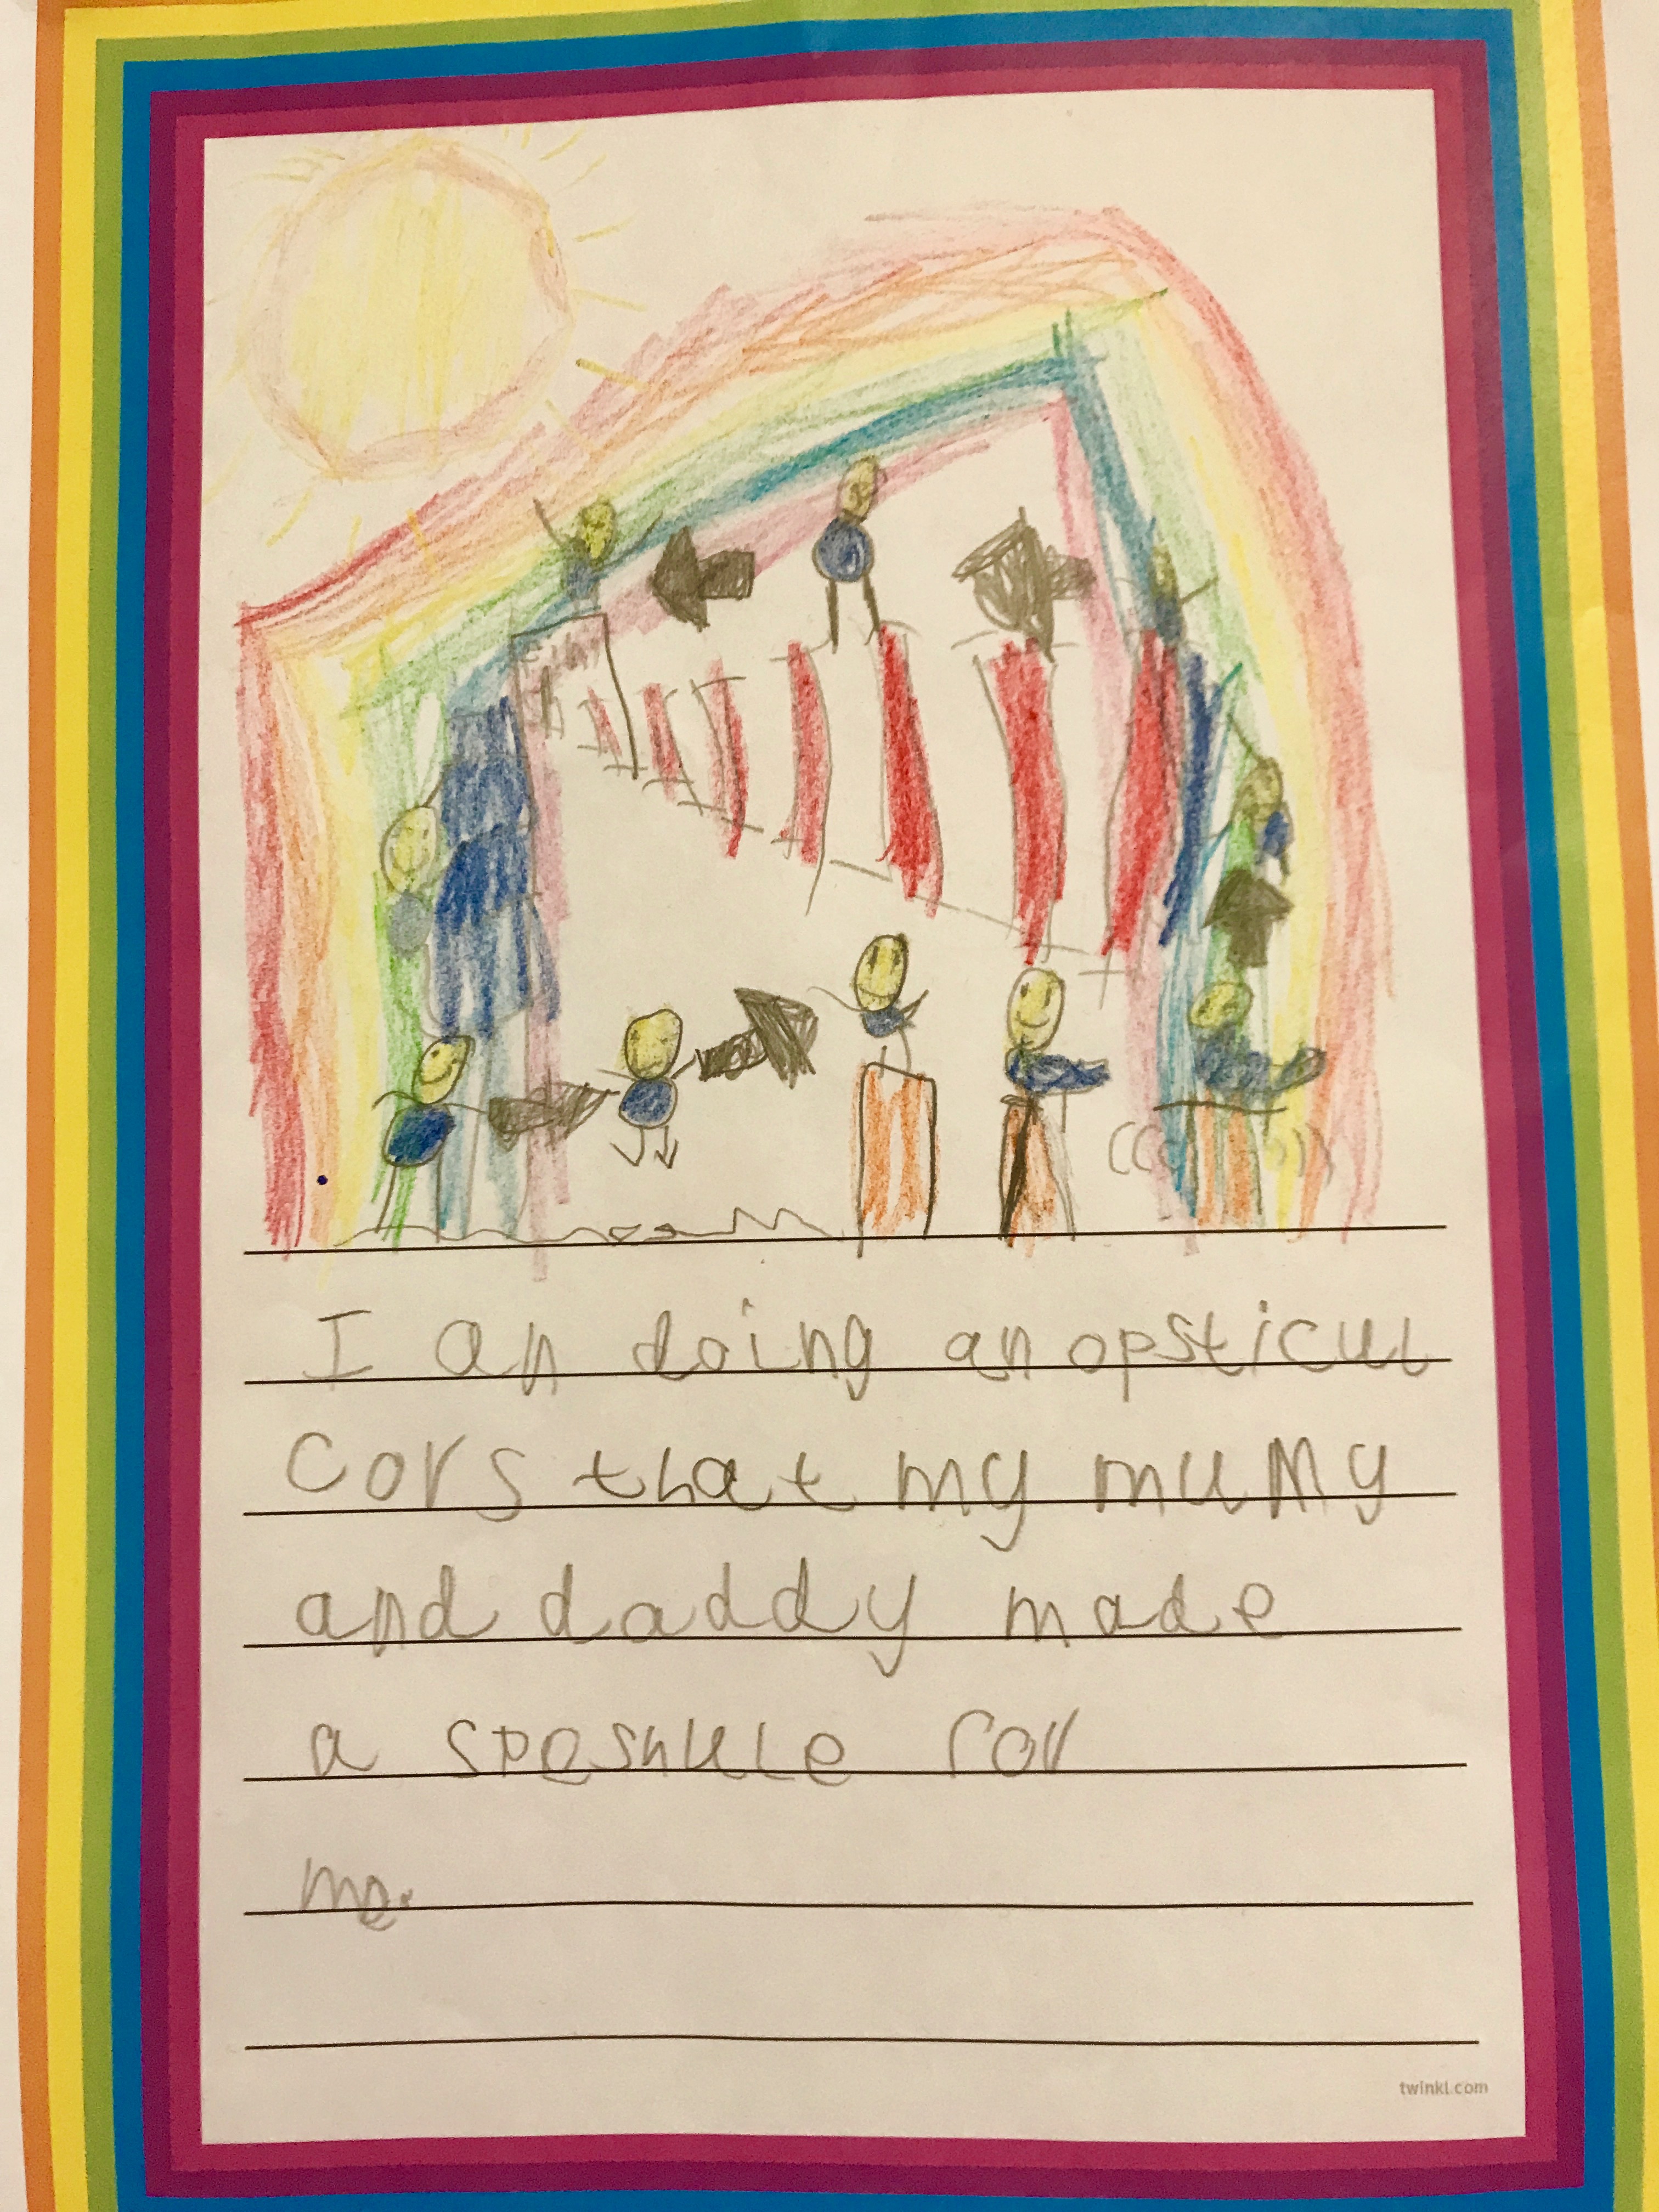 I an doing an opsticul
cors that my mummy
and daddy made
a speshule for
me.
twinkl.com